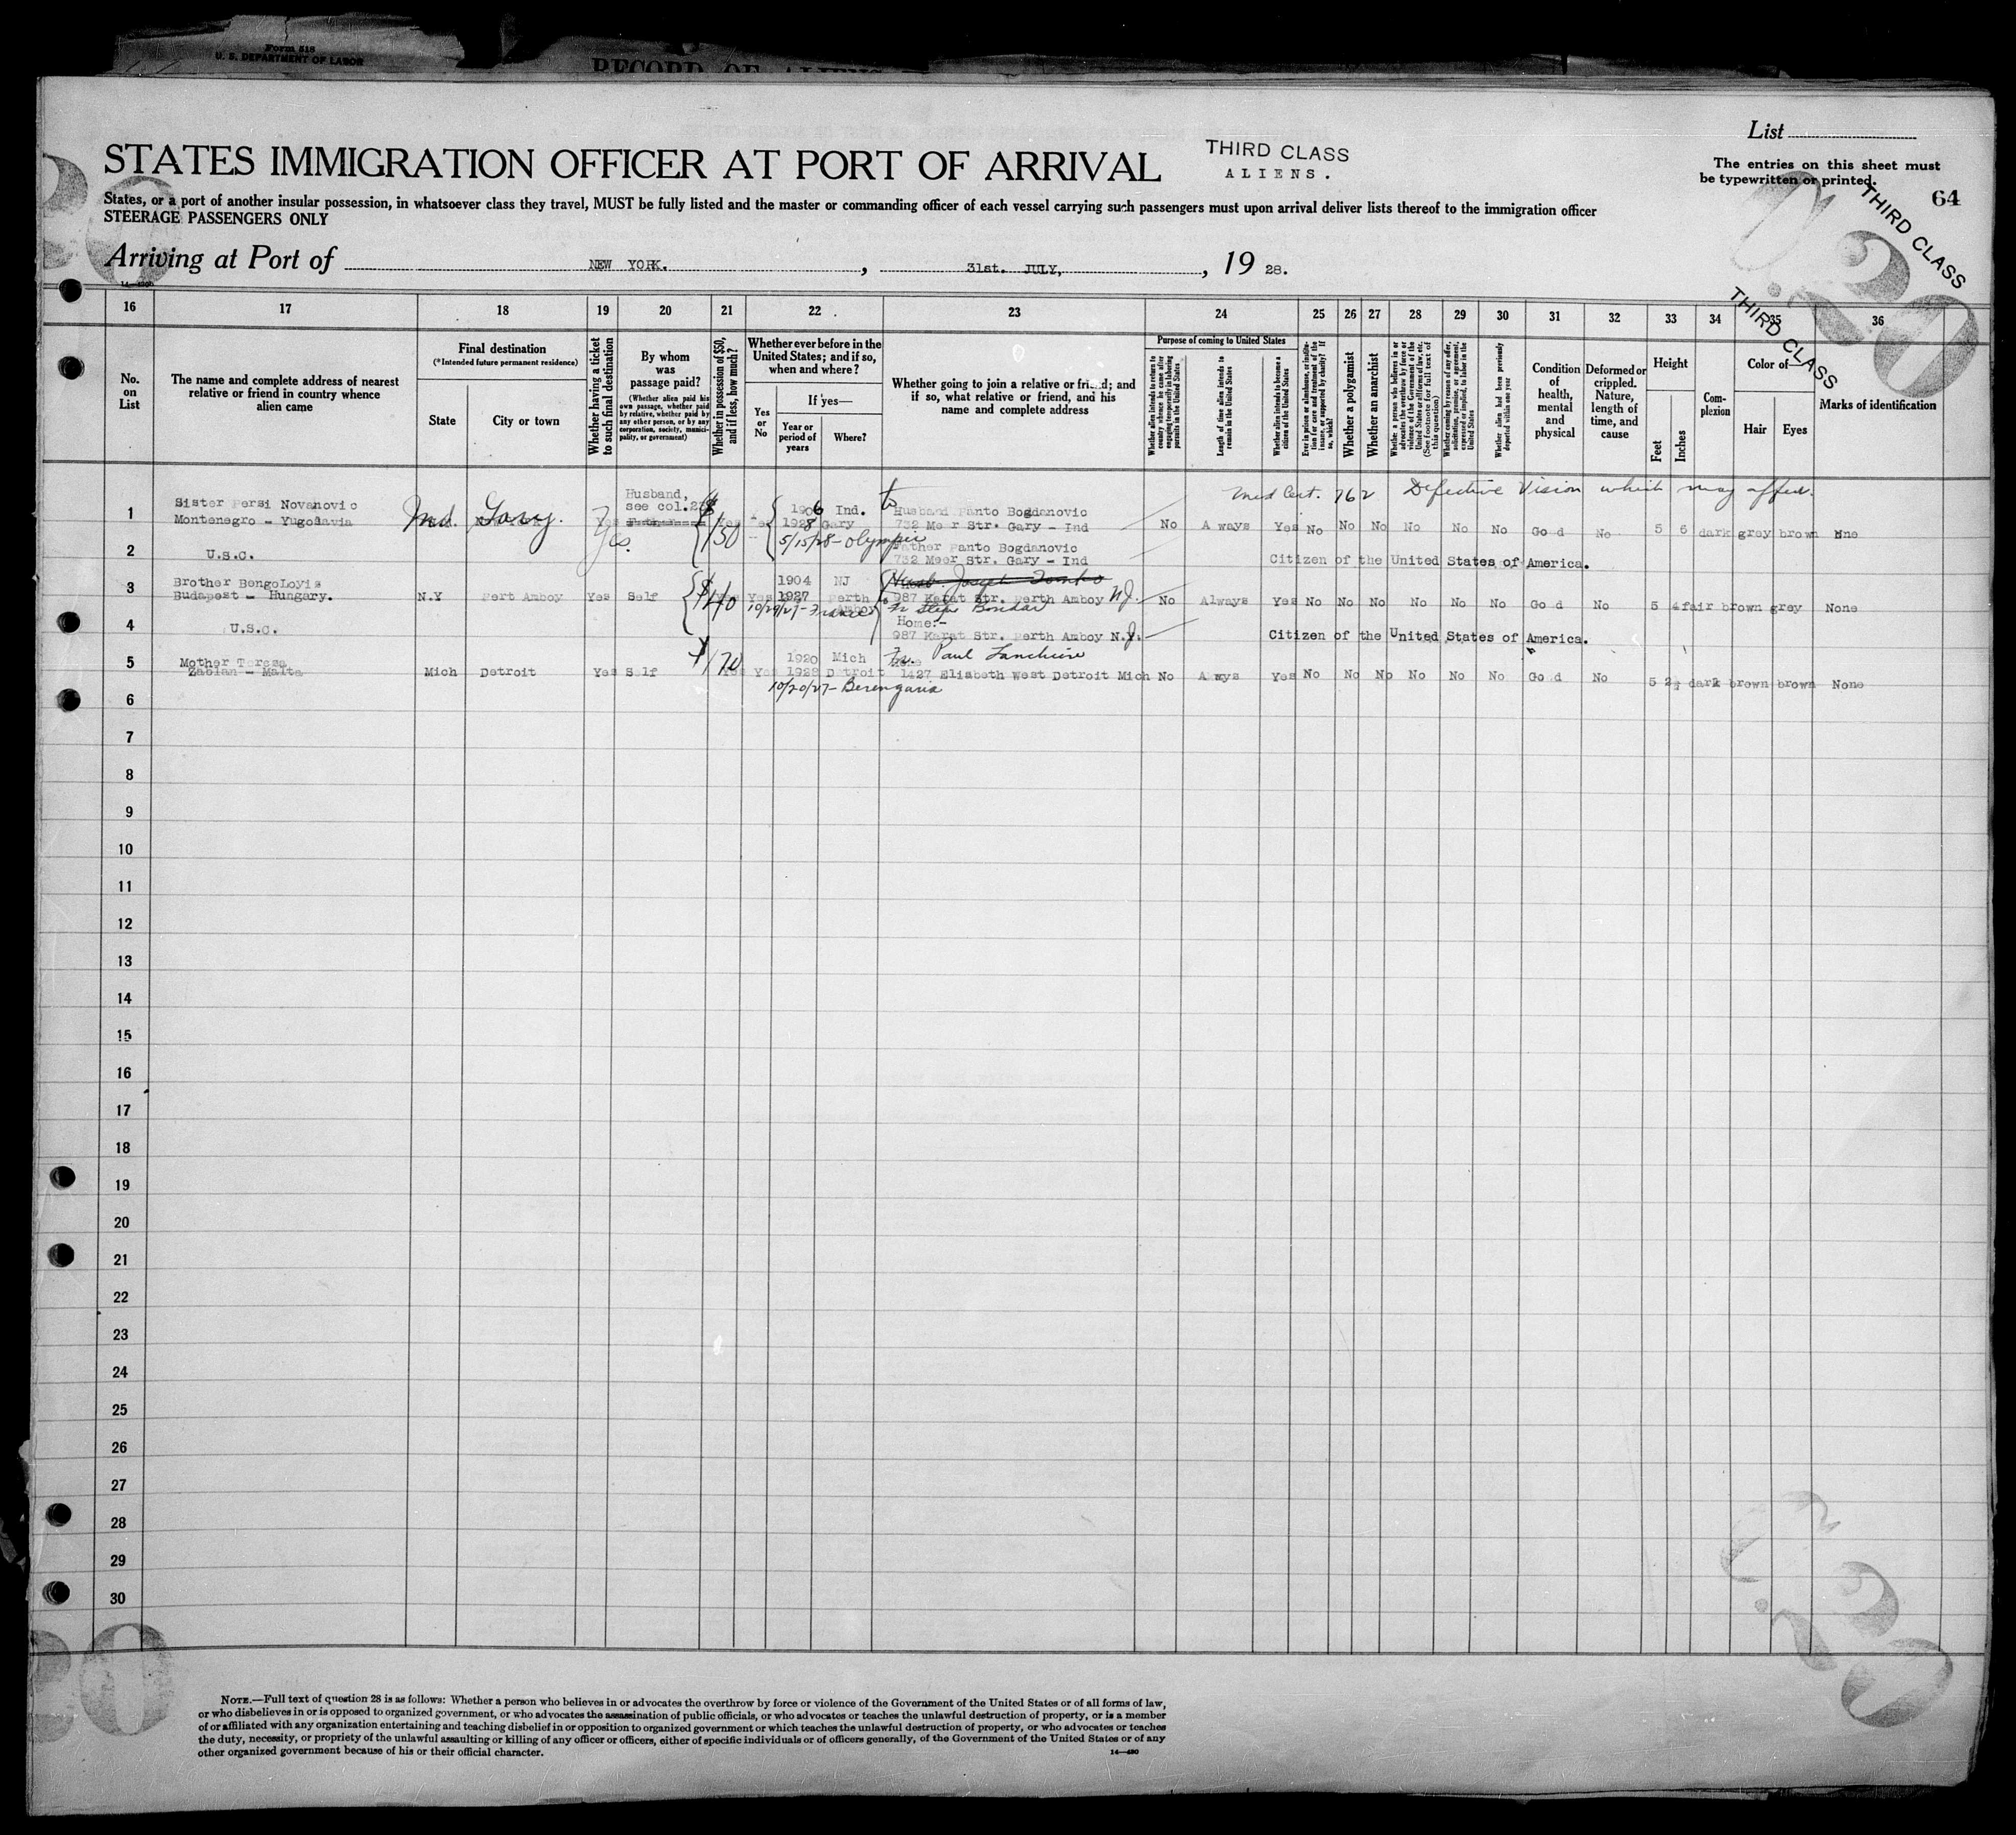 Form 518
U. S. DEPARTMENT OF LABOR
RECORD OF ALIENS
List
STATES IMMIGRATION OFFICER AT PORT OF ARRIVAL
THIRD CLASS
ALIENS.
The entries on this sheet must
be typewritten or printed.
64
THIRD CLASS
THIRD CLASS
States, or a port of another insular possession, in whatsoever class they travel, MUST be fully listed and the master or commanding officer of each vessel carrying such passengers must upon arrival deliver lists thereof to the immigration officer
STEERAGE PASSENGERS ONLY
Arriving at Port of NEW YORK. , 31st. JULY, , 19 28.
16 17 18 19 20 21 22 23 24 25 26 27 28 29 30 31 32 33 34 35 36
No. on List
The name and complete address of nearest relative or friend in country whence alien came
Final destination
(*Intended future permanent residence)
State
City or town
Whether having a ticket to such final destination
By whom was passage paid?
(Whether alien paid his own passage, whether paid by relative, whether paid by any other person, or by any corporation, society, municipality, or government)
Whether in possession of $50, and if less, how much?
Whether ever before in the United States; and if so, when and where?
Yes or No
If yes—
Year or period of years
Where?
Whether going to join a relative or friend; and if so, what relative or friend, and his name and complete address
Purpose of coming to United States
Whether alien intends to return to country whence he came after engaging temporarily in laboring pursuits in the United States
Length of time alien intends to remain in the United States
Whether alien intends to become a citizen of the United States
Ever in prison or almshouse, or institution for care and treatment of the insane, or supported by charity? If so, which?
Whether a polygamist
Whether an anarchist
Whether a person who believes in or advocates the overthrow by force or violence of the Government of the United States or all forms of law, etc. (See footnote for full text of this question)
Whether coming by reason of any offer, solicitation, promise, or agreement, expressed or implied, to labor in the United States
Whether alien had been previously deported within one year
Condition of health, mental and physical
Deformed or crippled. Nature, length of time, and cause
Height
Feet
Inches
Complexion
Color of—
Hair
Eyes
Marks of identification
Med Cert. 762 Defective Vision which may affect.
1 Sister Persi Novanovic Husband, see col. 23 1906 Ind. to Husband Panto Bogdanovic
Montenegro - Yugoslavia Ind. Gary. Yes $150 Yes 1928 Gary 732 Meer Str. Gary - Ind No Always Yes No No No No No No Good No 5 6 dark grey brown None
Yes. 5/15/28 - Olympic
2 U.S.C. Father Panto Bogdanovic
732 Meer Str. Gary - Ind Citizen of the United States of America.
3 Brother BengoLoyis 1904 NJ Husb. Joseph Tomko
Budapest - Hungary. N.Y Pert Amboy Yes Self $140 Yes Yes 1927 Perth Amboy 987 Karat Str. Perth Amboy NJ. No Always Yes No No No No No No Good No 5 4 fair brown grey None
10/29/27 - France
4 U.S.C. Home:-
987 Karat Str. Perth Amboy N.J. Citizen of the United States of America.
5 Mother Teresa $170 1920 Mich Fr. Paul
Zabian - Malta Mich Detroit Yes Self Yes Yes 1928 Detroit 1427 Elizabeth West Detroit Mich No Always Yes No No No No No No Good No 5 2½ dark brown brown None
10/20/27 - Berengaria
6
7
8
9
10
11
12
13
14
15
16
17
18
19
20
21
22
23
24
25
26
27
28
29
30
NOTE.—Full text of question 28 is as follows: Whether a person who believes in or advocates the overthrow by force or violence of the Government of the United States or of all forms of law,
or who disbelieves in or is opposed to organized government, or who advocates the assassination of public officials, or who advocates or teaches the unlawful destruction of property, or is a member
of or affiliated with any organization entertaining and teaching disbelief in or opposition to organized government or which teaches the unlawful destruction of property, or who advocates or teaches
the duty, necessity, or propriety of the unlawful assaulting or killing of any officer or officers, either of specific individuals or of officers generally, of the Government of the United States or of any
other organized government because of his or their official character.
14—480